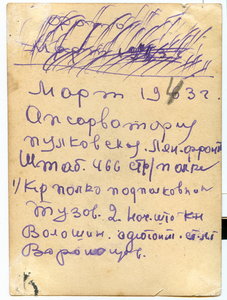 Март 1943 г.
Апсорватория
пулковская. Лен. фронт
Штаб. 466 стр/полка
1/ к-р полка подполковник
Тузов. 2. нач. што кн
Волошин. адютант. ст. лт
Воронцов.